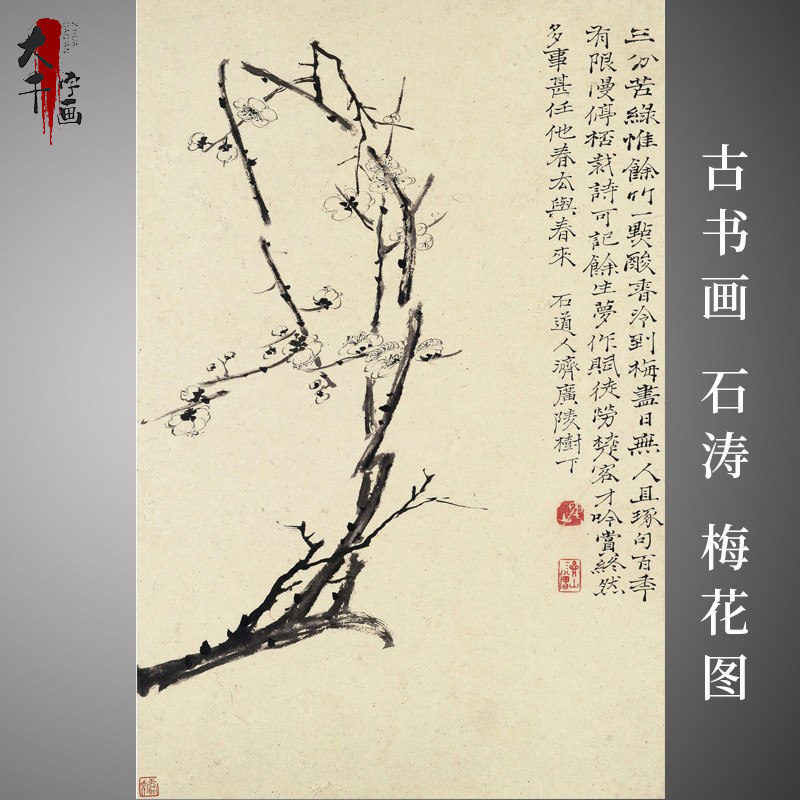 大千
字画
ZIHUA
DAQIAN
三分苦綠惟餘竹一點酸香冷到梅盡日無人且琢句百年
有限漫停桮哉詩可記餘生夢作賦徒勞楚客才吟賞終然
多事甚任他春去與春來
石道人濟廣陵樹下
古书画 石涛 梅花图